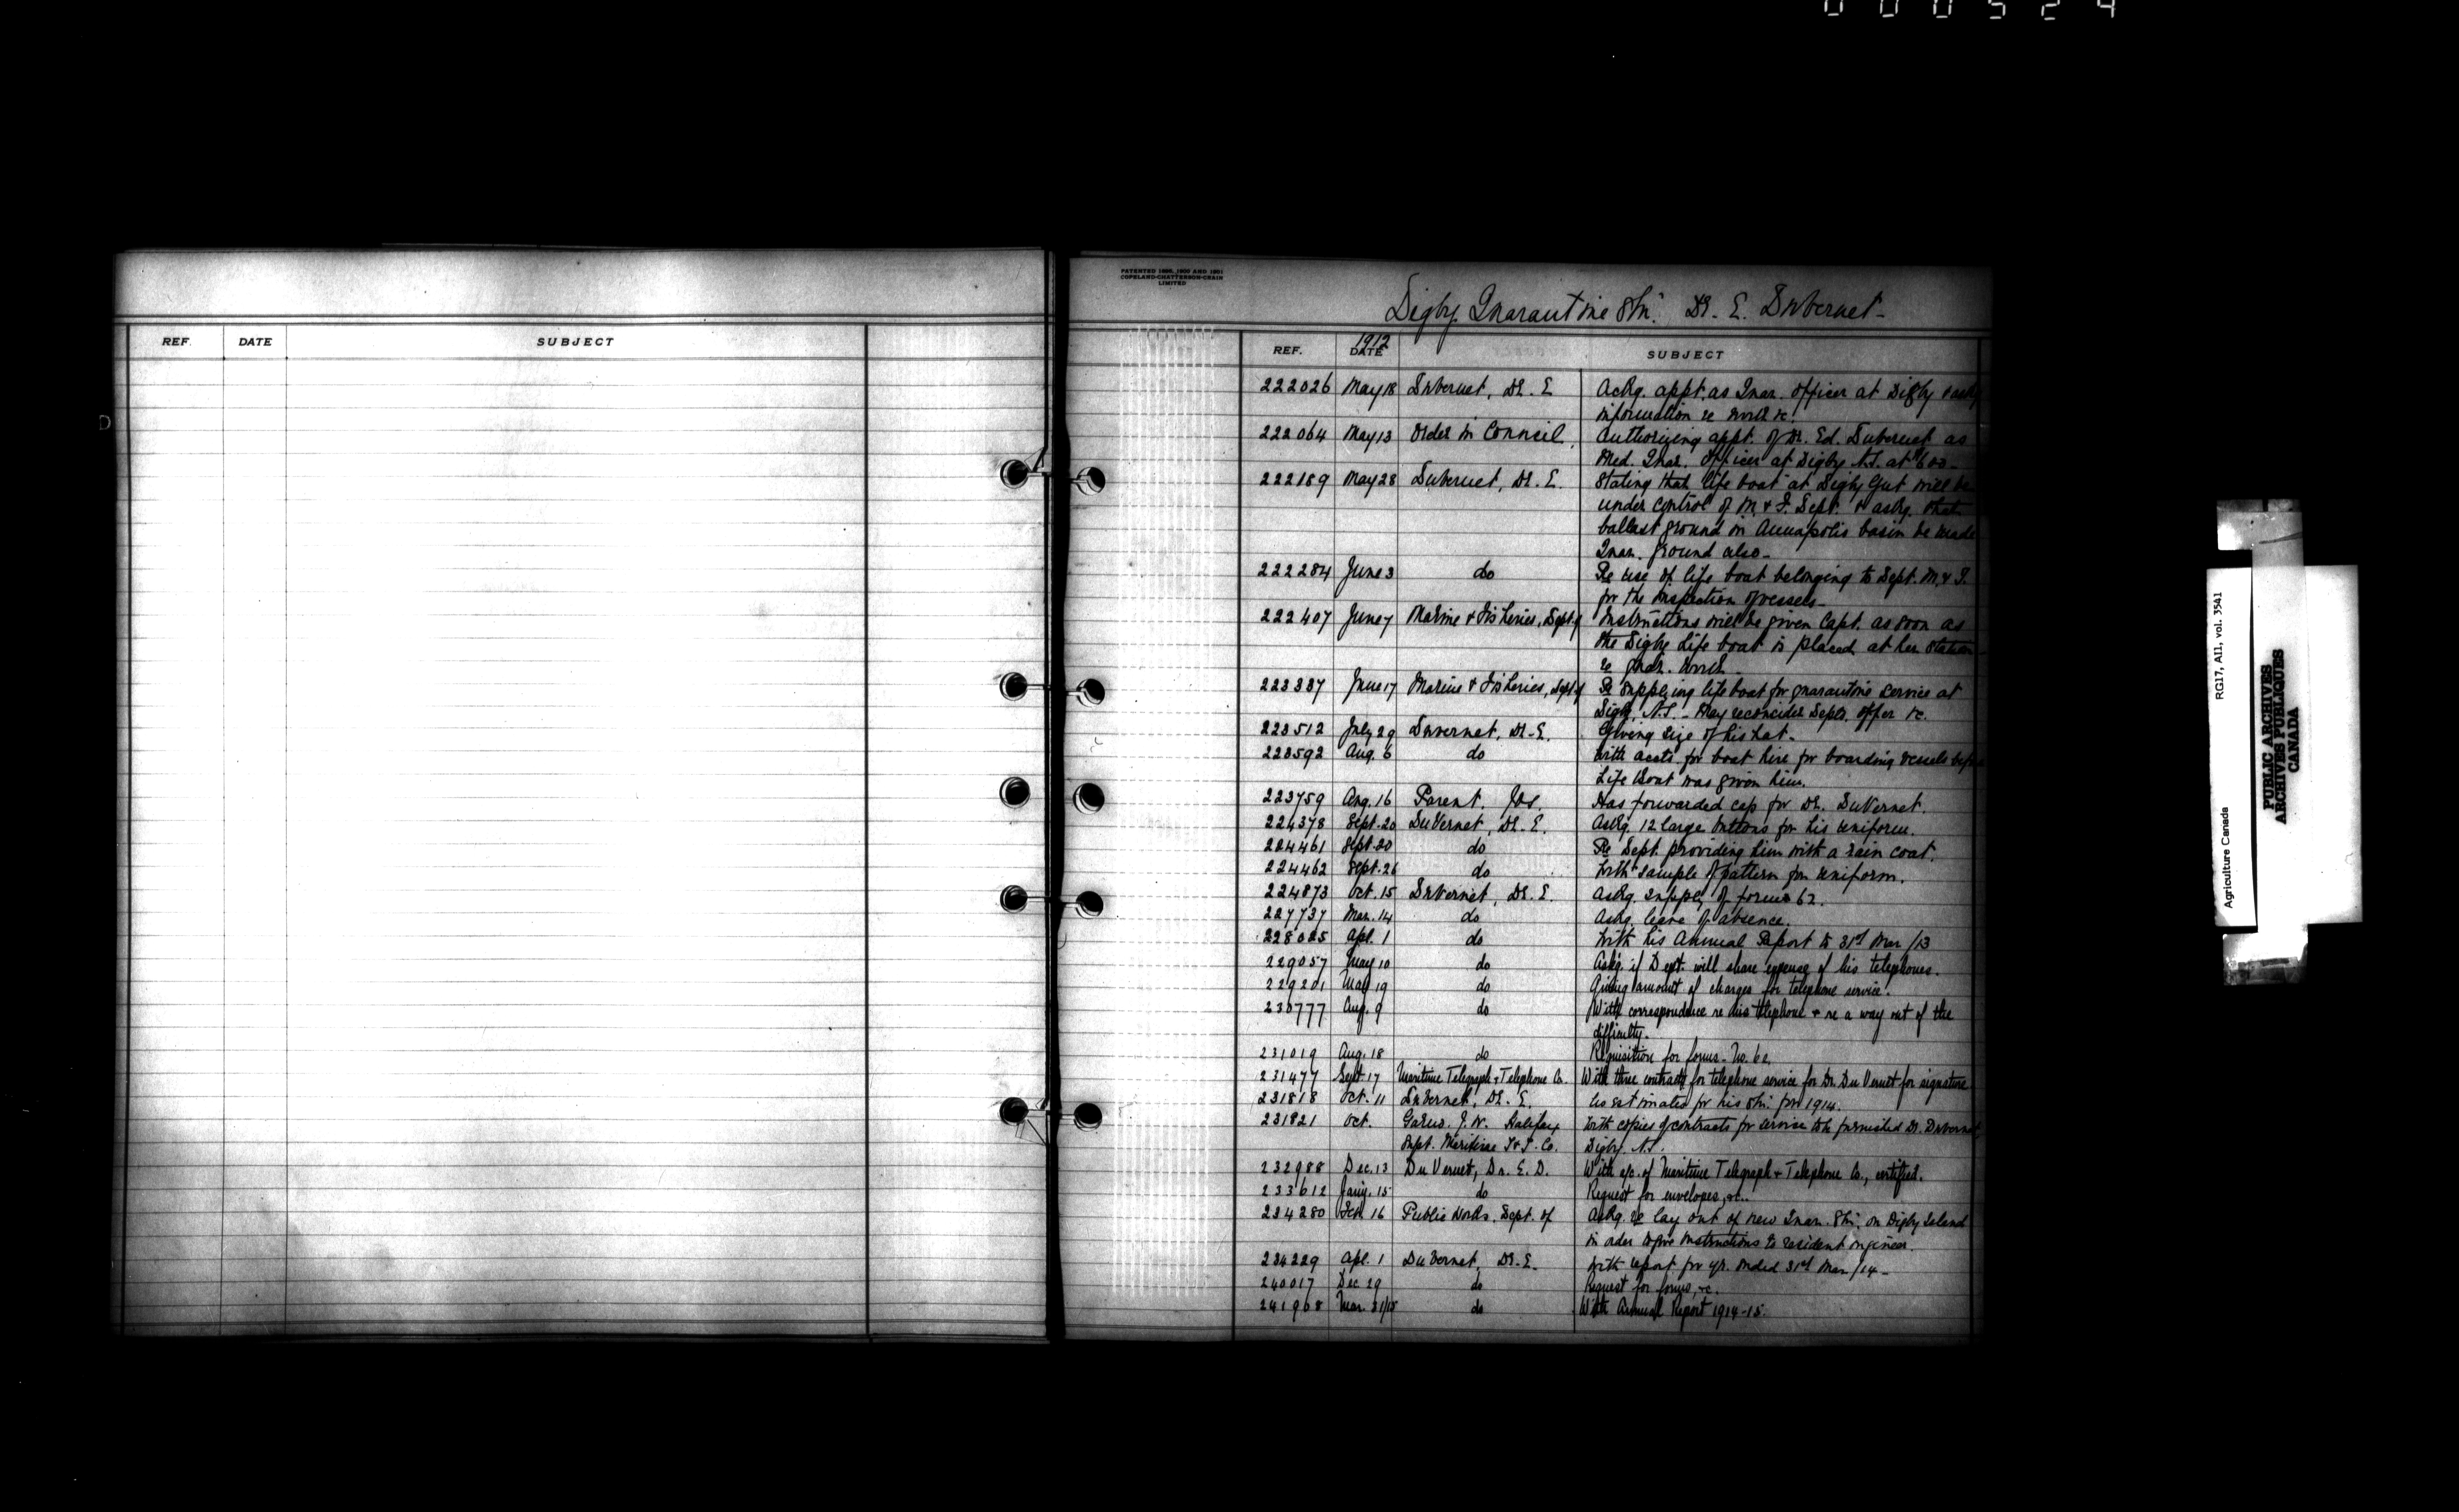 000524
REF. DATE SUBJECT
D
PATENTED 1898, 1900 AND 1901
COPELAND-CHATTERSON-CRAIN
LIMITED
Digby Quarantine Stn. Dr. E. DuVernet
1912
REF. DATE SUBJECT
222026 May 18 DuVernet, Dr. E Ackg. appt. as Quar. officer at Digby & askg
information re work &c.
222064 May 13 Order in Council, Authorizing appt. of Dr. Ed. DuVernet as
Med. Quar. Officer at Digby N.S. at $600-
222189 May 28 DuVernet, Dr. E. Stating that life boat at Digby Gut will be
under control of M. & F. Dept. & askg. that
ballast ground in Annapolis basin be made
Quar. ground also-
222284 June 3 do Re use of life boat belonging to Dept. M. & F.
for the inspection of vessels-
222407 June 7 Marine & Fisheries, Dept. of Instructions will be given Capt. as soon as
the Digby Life boat is placed at her station
re quar. work-
223337 June 17 Marine & Fisheries, Dept. of Re supplying life boat for quarantine service at
Digby, N.S. - May reconsider Depts. offer &c.
223512 July 29 DuVernet, Dr. E. Giving size of his hat-
223592 Aug. 6 do With accts. for boat hire for boarding vessels before
Life Boat was given him.
223759 Aug. 16 Parent, Jos. Has forwarded cap for Dr. DuVernet.
224378 Sept. 20 DuVernet, Dr. E. Askg. 12 large buttons for his uniform.
224461 Sept. 20 do Re Dept. providing him with a rain coat.
224462 Sept. 26 do With sample of pattern for uniform.
224873 Oct. 15 DuVernet, Dr. E. Askg. supply of forms 62.
227737 Mar. 14 do Askg. leave of absence.
228025 Apl. 1 do With his Annual Report to 31st Mar /13
229057 May 10 do Askg. if Dept. will share expense of his telephones.
229201 May 19 do Giving amount of charges for telephone service.
230777 Aug. 9 do With correspondence re his telephone & re a way out of the
difficulty.
231019 Aug. 18 do Requisition for forms - No. 62.
231477 Sept. 17 Maritime Telegraph & Telephone Co. With three contracts for telephone service for Dr. Du Vernet for signature
231818 Oct. 11 DuVernet, Dr. E. estimates for his Stn. for 1914.
231821 Oct. J. W. Halifax With copies of contracts for service to be furnished Dr. DuVernet,
Supt. Maritime T & T. Co. Digby N.S.
232988 Dec. 13 Du Vernet, Dr. E. D. With a/c. of Maritime Telegraph & Telephone Co., certified.
233612 Jany. 15 do Request for envelopes, &c..
234280 Feb 16 Public Works, Dept. of Askg. re lay out of new Quar. Stn. on Digby Island
in order to give instructions to resident engineer.
236229 Apl. 1 DuVernet, Dr. E. With report for yr. ended 31st Mar /14-
240017 Dec 29 do Request for forms, &c.
241968 Mar. 31/15 do With Annual Report 1914-15.
RG17, AI1, vol. 3541
Agriculture Canada
PUBLIC ARCHIVES
ARCHIVES PUBLIQUES
CANADA